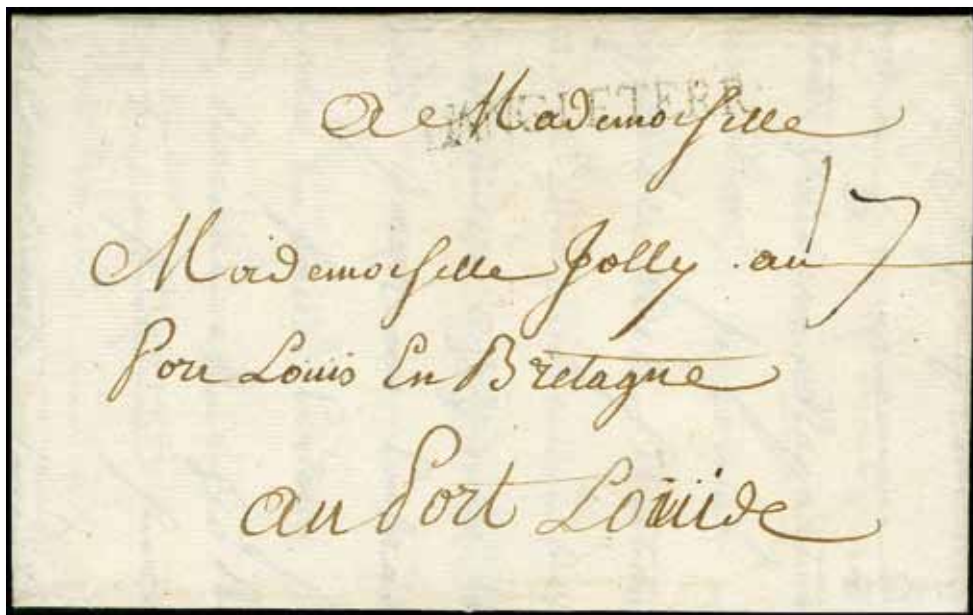 ANGLETERRE
A Mademoiselle
17
Mademoiselle Jolly au
Port Louis En Bretagne
au Port Louis